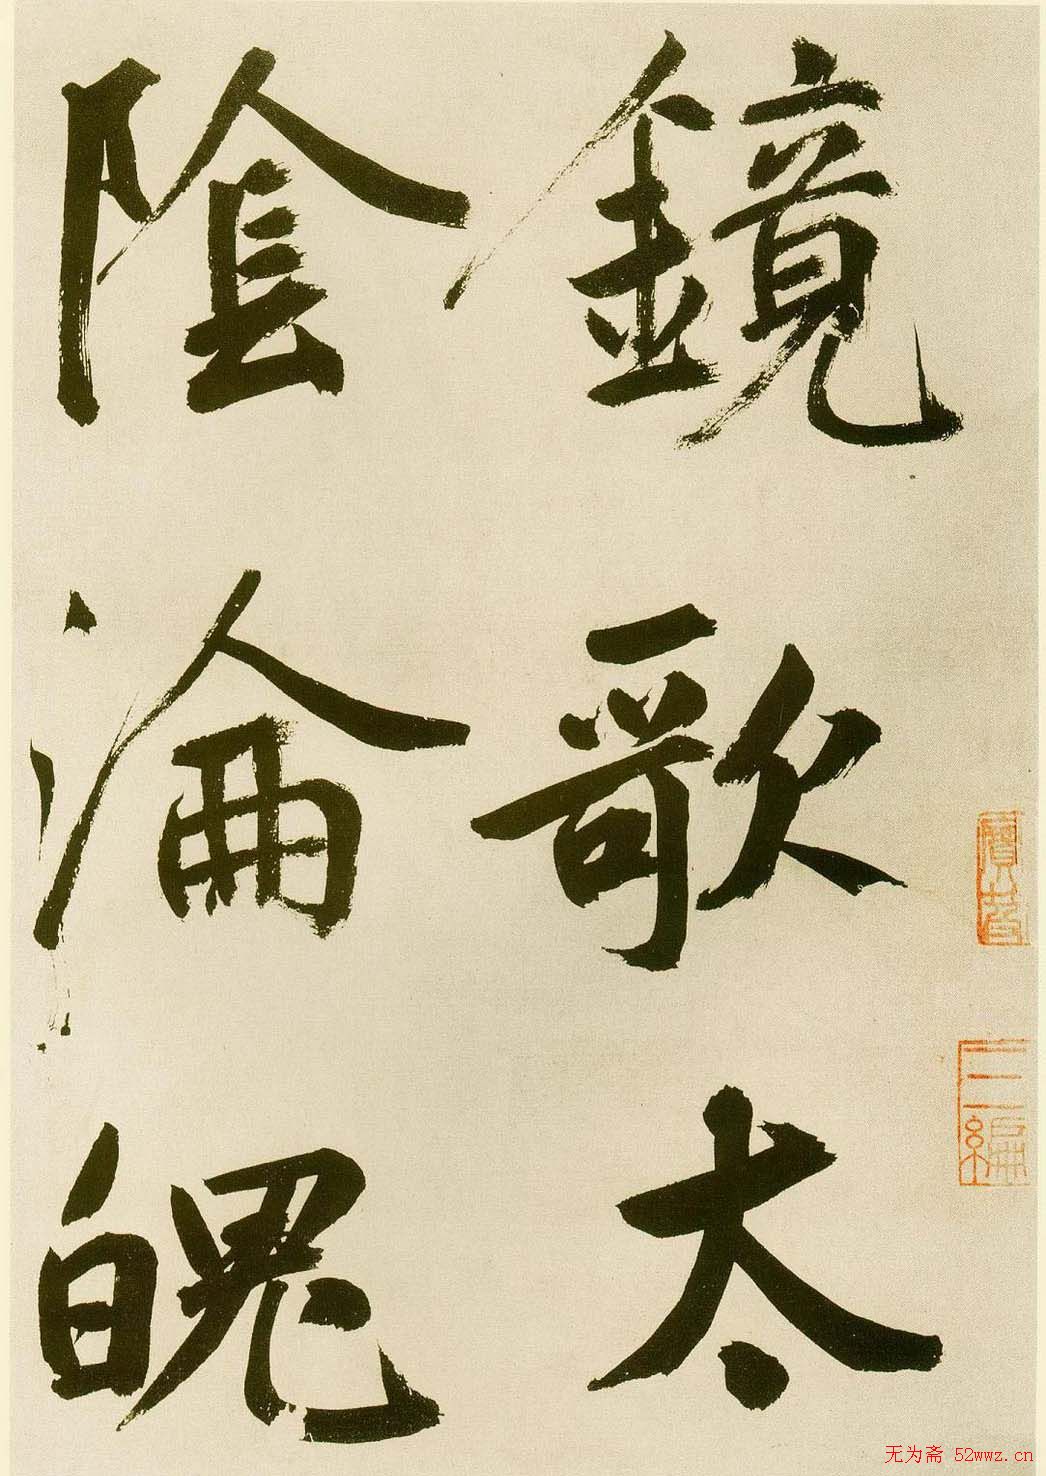 鏡歌太
陰淪魄
三編
无为斋 52wwz.cn